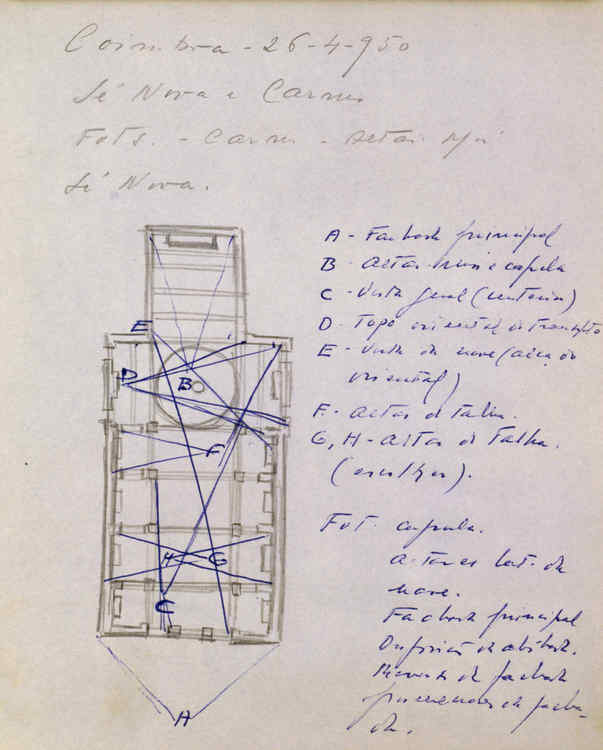 Coimbra - 26-4-950
Sé Nova e Carmo
Fots. - Carmo - Altar Mór
Sé Nova.
A - Fachada principal
B - Altar-mór e cupula
C - Vista geral (interior)
D - Topo oriental do transepto
E - Vista da nave (
oriental)
F - Altar de talha.
G, H - Altar de Talha.
(escolher).
Fot. cupula.
Altares lat. da
nave.
Fachada principal
fachada
da
E
D
B
F
H
G
C
A